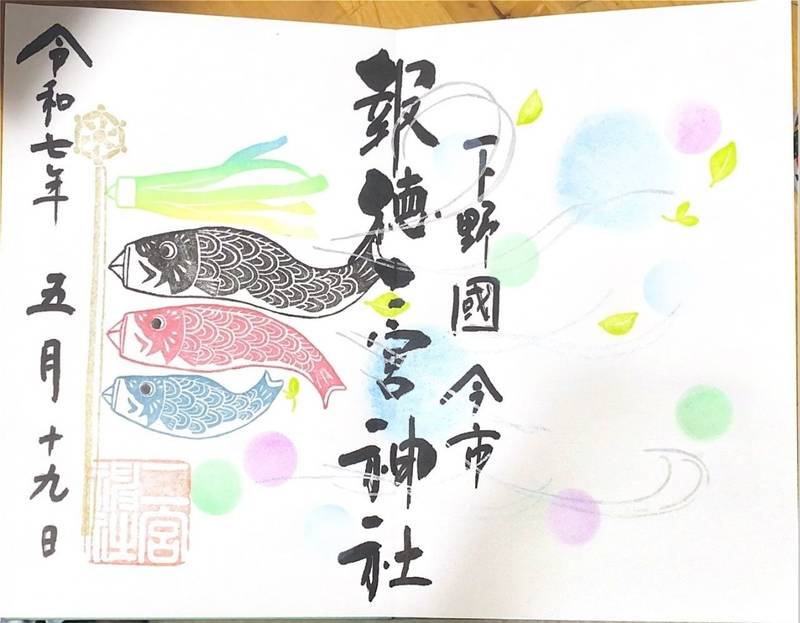 下野國 今市
報徳二宮神社
令和七年 五月十九日
二宮神社